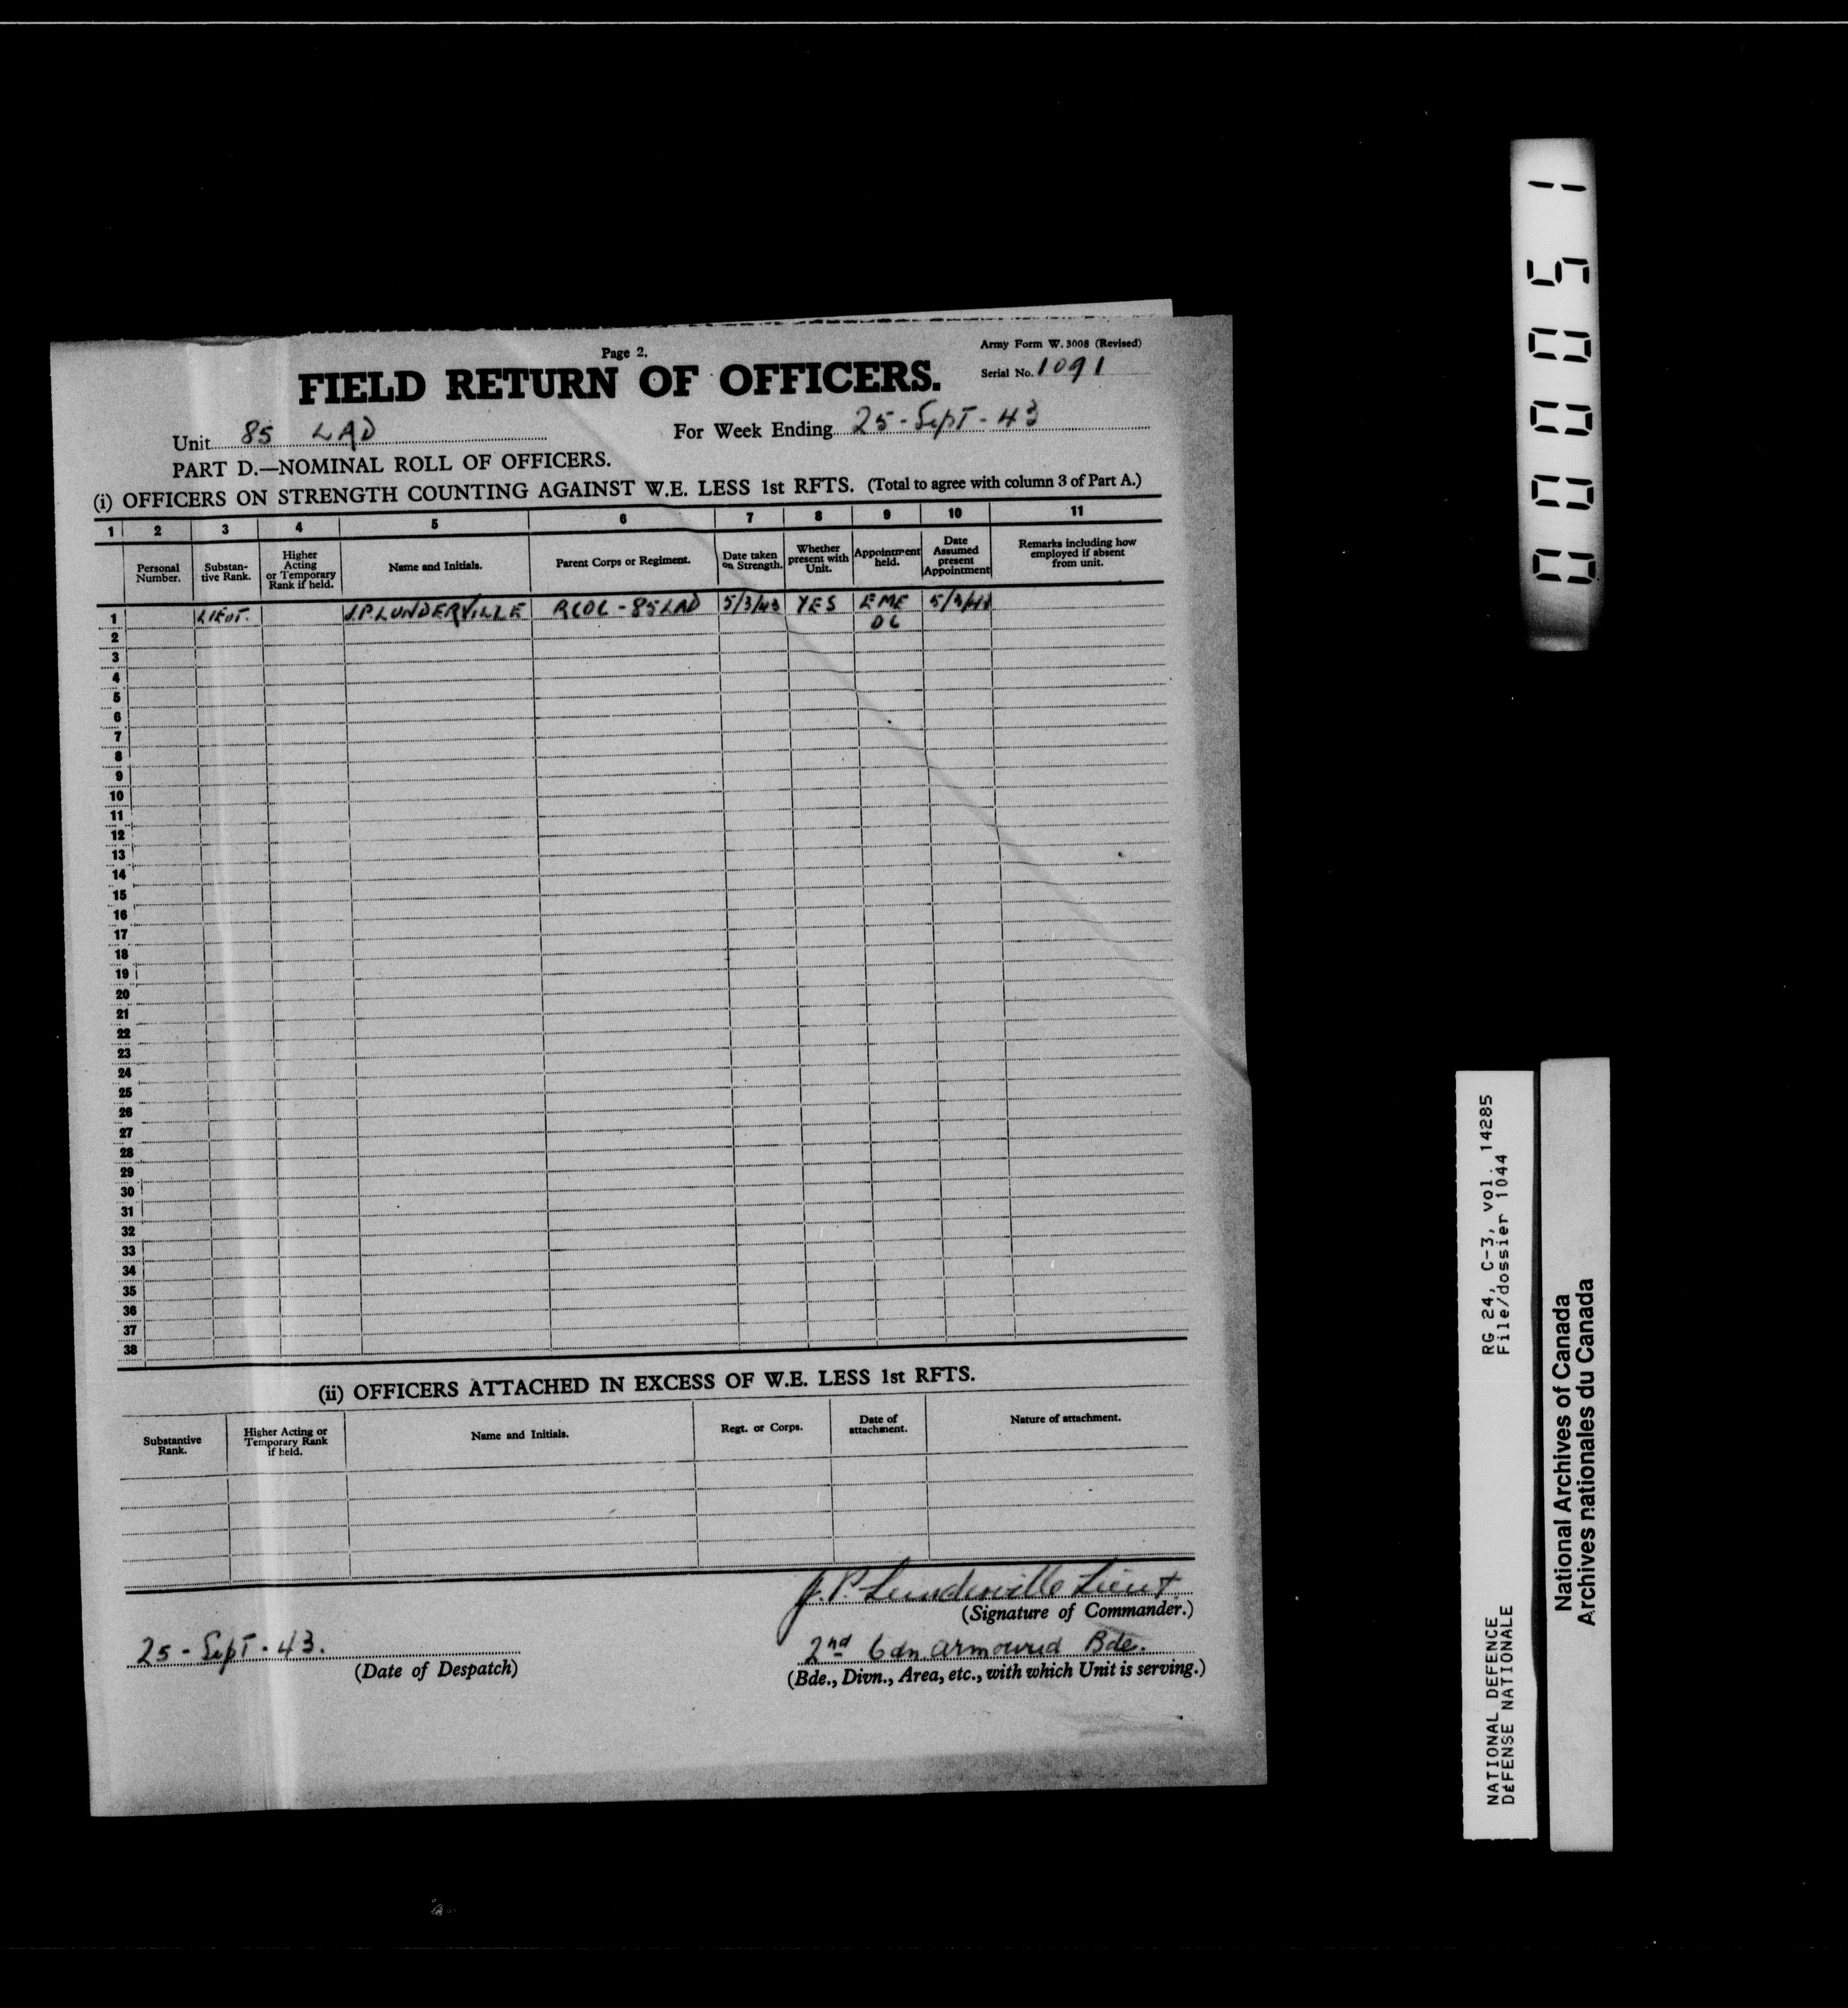 Page 2.
Army Form W. 3008 (Revised)
FIELD RETURN OF OFFICERS.
Serial No. 1091
Unit 85 LAD For Week Ending 25-Sept-43
PART D.—NOMINAL ROLL OF OFFICERS.
(i) OFFICERS ON STRENGTH COUNTING AGAINST W.E. LESS 1st RFTS. (Total to agree with column 3 of Part A.)
1 2 3 4 5 6 7 8 9 10 11
Personal Number. Substan-tive Rank. Higher Acting or Temporary Rank if held. Name and Initials. Parent Corps or Regiment. Date taken on Strength. Whether present with Unit. Appointment held. Date Assumed present Appointment Remarks including how employed if absent from unit.
1 LIEUT. J.P. LUNDERVILLE RCOC - 85 LAD 5/3/43 YES EME
2
3
4
5
6
7
8
9
10
11
12
13
14
15
16
17
18
19
20
21
22
23
24
25
26
27
28
29
30
31
32
33
34
35
36
37
38
(ii) OFFICERS ATTACHED IN EXCESS OF W.E. LESS 1st RFTS.
Substantive Rank. Higher Acting or Temporary Rank if held. Name and Initials. Regt. or Corps. Date of attachment. Nature of attachment.
J. P. Lunderville Lieut.
(Signature of Commander.)
25-Sept-43. 2nd Cdn. Armoured Bde.
(Date of Despatch) (Bde., Divn., Area, etc., with which Unit is serving.)
000051
RG 24, C-3, vol. 14285
File/dossier 1044
NATIONAL DEFENCE
DÉFENSE NATIONALE
National Archives of Canada
Archives nationales du Canada